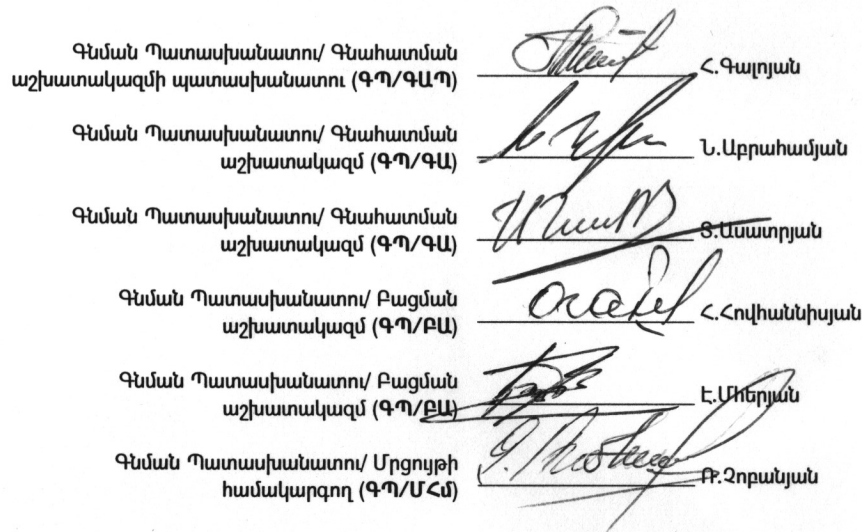 Գնման Պատասխանատու/ Գնահատման
աշխատակազմի պատասխանատու (ԳՊ/ԳԱՊ)
Հ.Գալոյան
Գնման Պատասխանատու/ Գնահատման
աշխատակազմ (ԳՊ/ԳԱ)
Ն.Աբրահամյան
Գնման Պատասխանատու/ Գնահատման
աշխատակազմ (ԳՊ/ԳԱ)
Տ.Ասատրյան
Գնման Պատասխանատու/ Բացման
աշխատակազմ (ԳՊ/ԲԱ)
Հ.Հովհաննիսյան
Գնման Պատասխանատու/ Բացման
աշխատակազմ (ԳՊ/ԲԱ)
Է.Մհերյան
Գնման Պատասխանատու/ Մրցույթի
համակարգող (ԳՊ/ՄՀմ)
Ռ.Չոբանյան